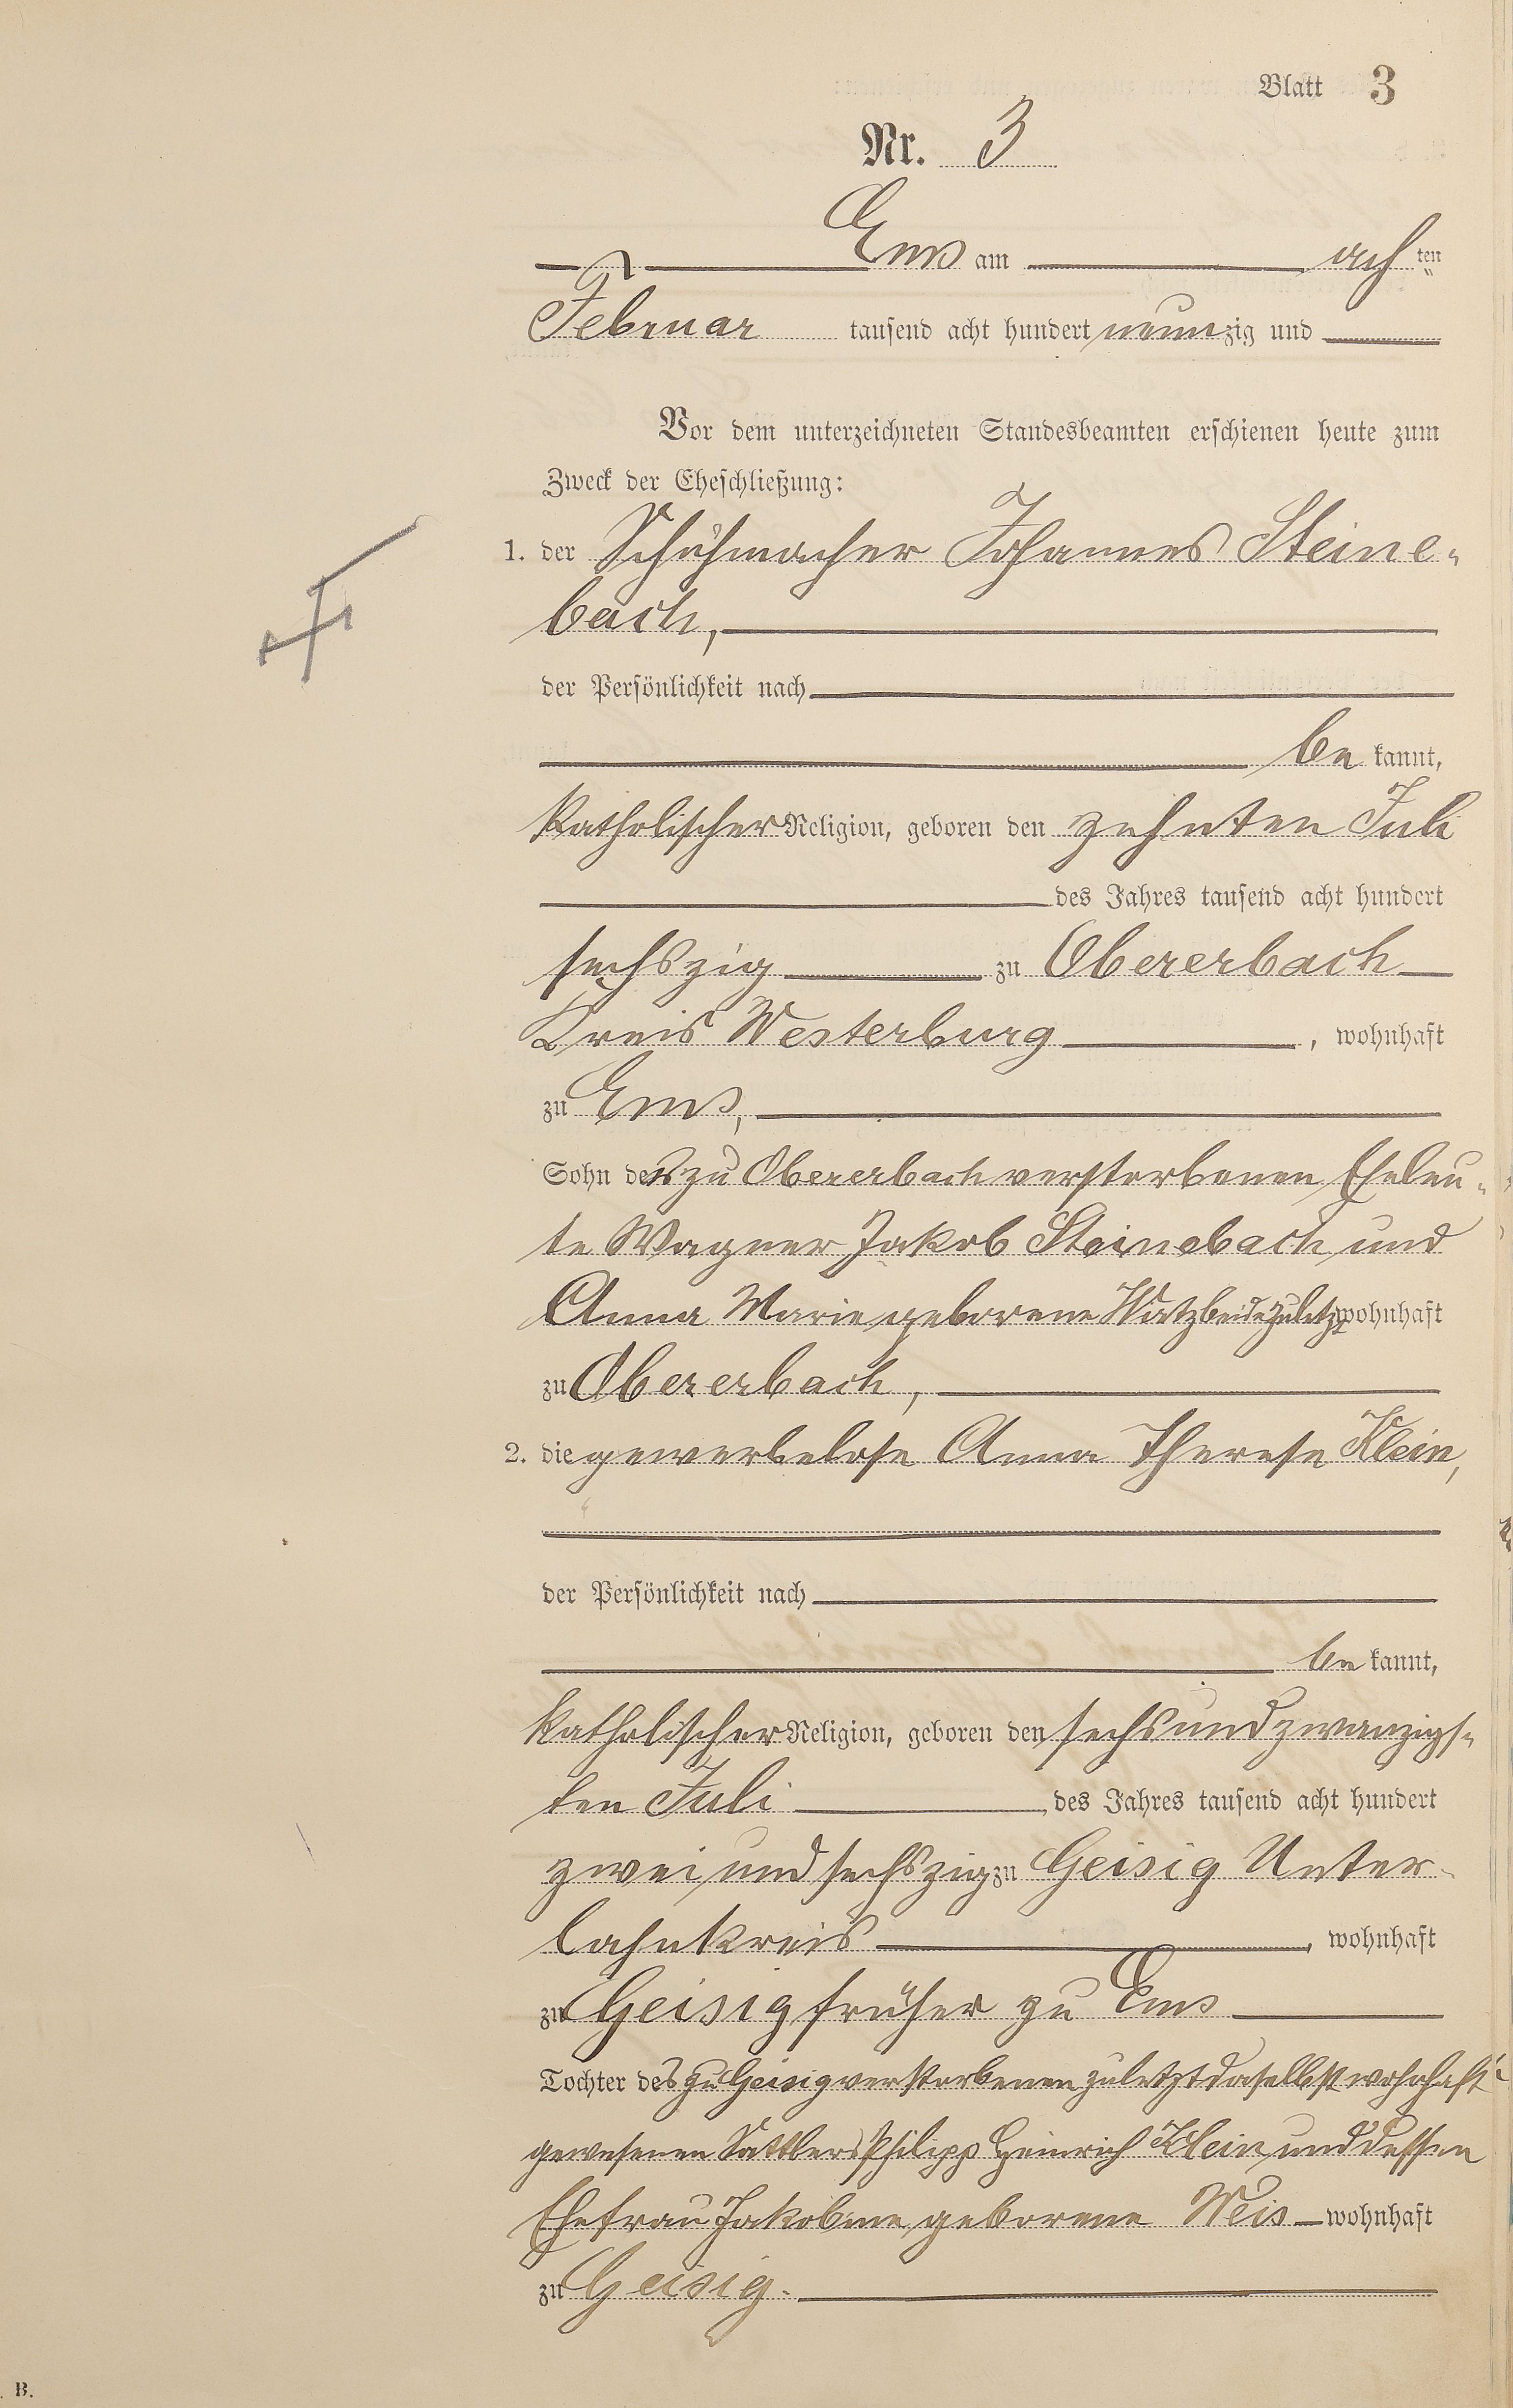 Blatt 3
Nr. 3
Ems am acht ten
Februar tausend acht hundert neunzig und
Vor dem unterzeichneten Standesbeamten erschienen heute zum
Zweck der Eheschließung:
1. der Schuhmacher Johannes Steine-
bach,
der Persönlichkeit nach
be kannt,
katholischer Religion, geboren den zehnten Juli
des Jahres tausend acht hundert
sechszig zu Obererbach
Kreis Westerburg, wohnhaft
zu Ems,
Sohn der zu Obererbach verstorbenen Eheleu-
te Wagner Jakob Steinebach und
Anna Marie geborene beide zuletzt wohnhaft
zu Obererbach,
2. die gewerbelose Anna Therese Klein,
der Persönlichkeit nach
be kannt,
katholischer Religion, geboren den sechsundzwanzigs-
ten Juli des Jahres tausend acht hundert
zwei und sechszig zu Geisig Unter-
lahnkreis, wohnhaft
zu Geisig früher zu Ems
Tochter des zu Geisig verstorbenen zuletzt daselbst wohnhaft
gewesenen Sattlers Philipp Heinrich Klein und dessen
Ehefrau Jakobine geborene Weis wohnhaft
zu Geisig.
B.